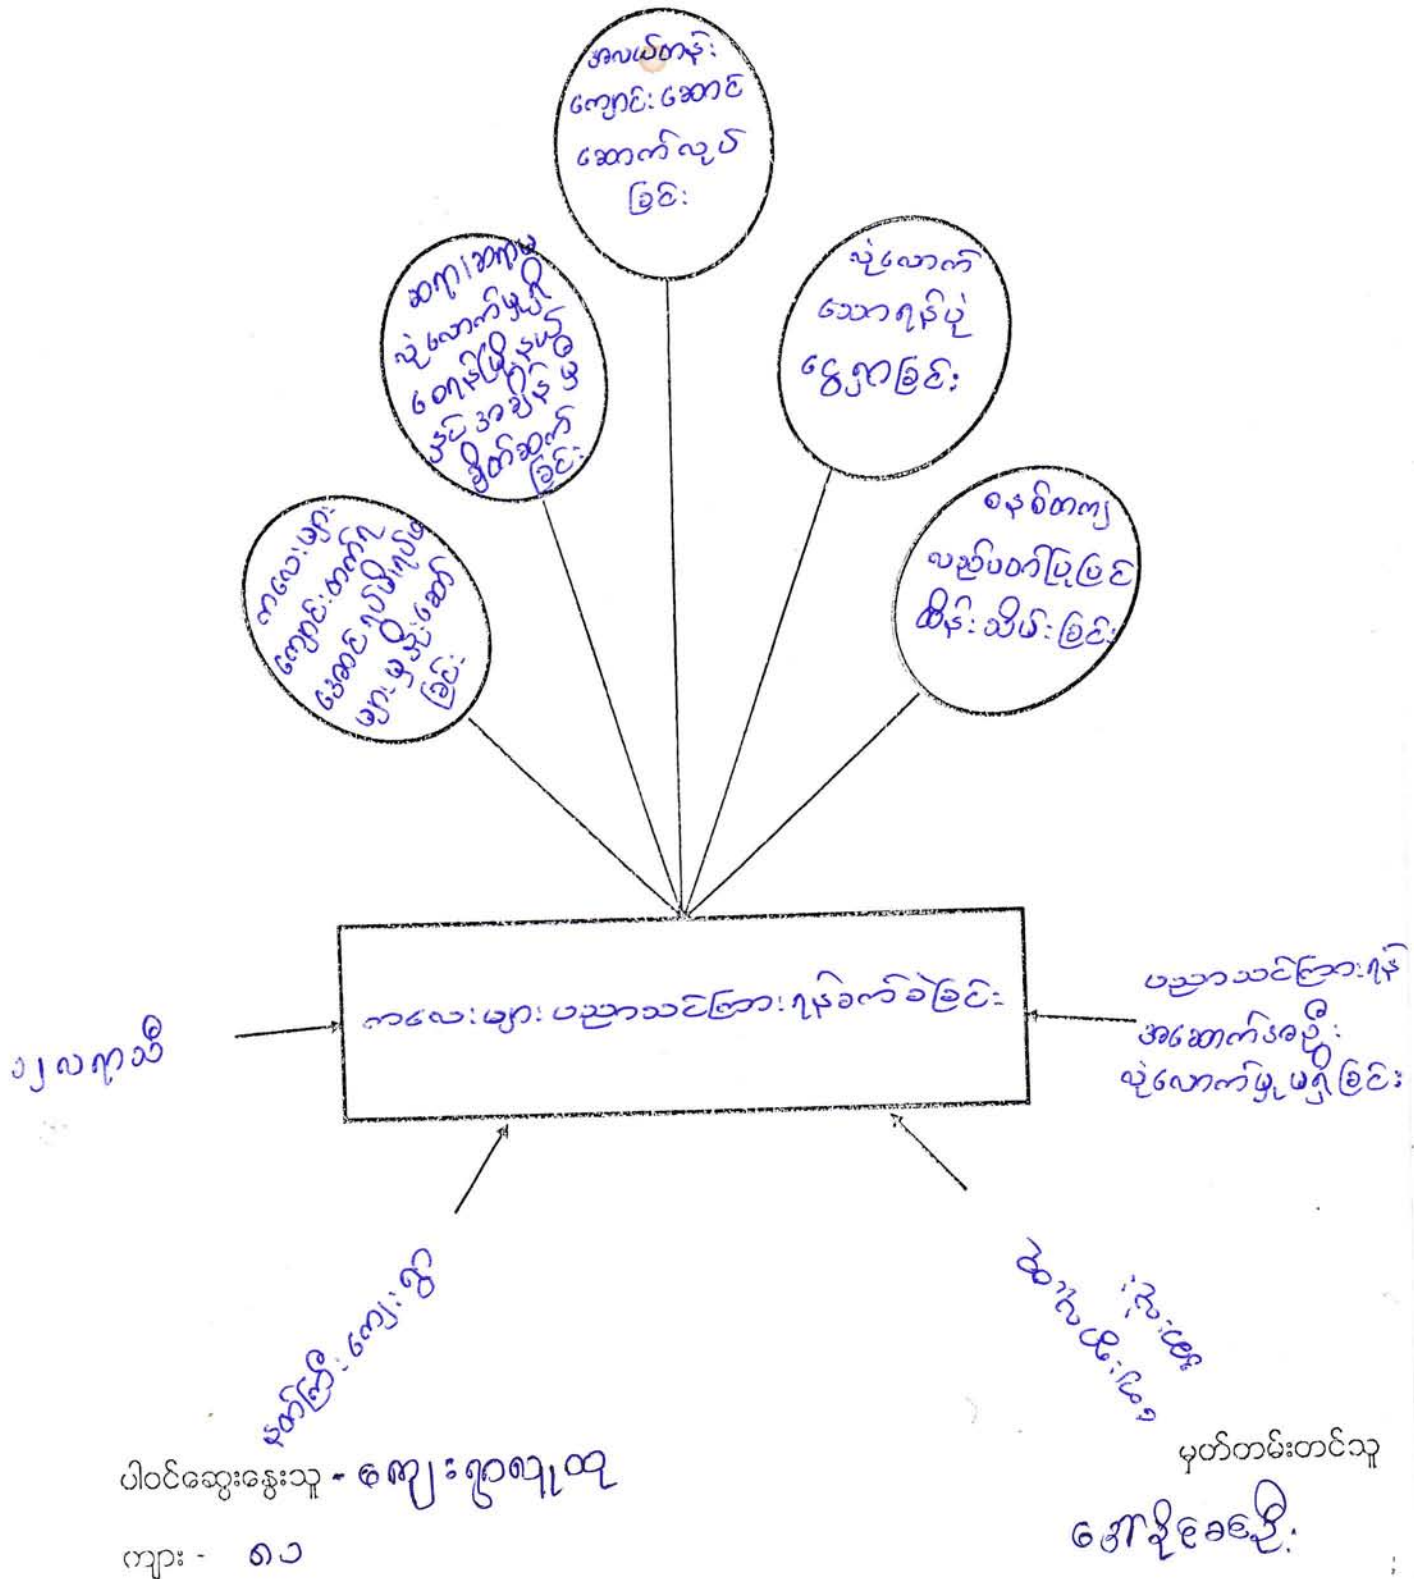 အလယ်တန်း
ကျောင်းဆောင်
ဆောက်လုပ်
ခြင်း
ဆရာ၊ဆရာမ
လုံလောက်မှုရှိ
စေရန်မြို့နယ်
အချိန်မှ
ချိတ်ဆက်
ခြင်း
လုံလောက်
သောရန်ပုံ
ငွေရှာခြင်း
ကလေးများ
ကျောင်းတက်ရ
အောင် ရပ်မိရပ်ဖ
များမှ ဆော်
ခြင်း
စနစ်တကျ
လည်ပတ်ပြုပြင်
ထိန်းသိမ်းခြင်း
ကလေးများ ပညာသင်ကြားရန်ခက်ခဲခြင်း
၁၂လရာသီ
ပညာသင်ကြားရန်
အဆောက်အဦး
လုံလောက်မှု မရှိခြင်း
နတ်ကြီးကျေးရွာ
ပါဝင်ဆွေးနွေးသူ - ကျေးရွာလူထု
ကျား - ၈၁
မှတ်တမ်းတင်သူ